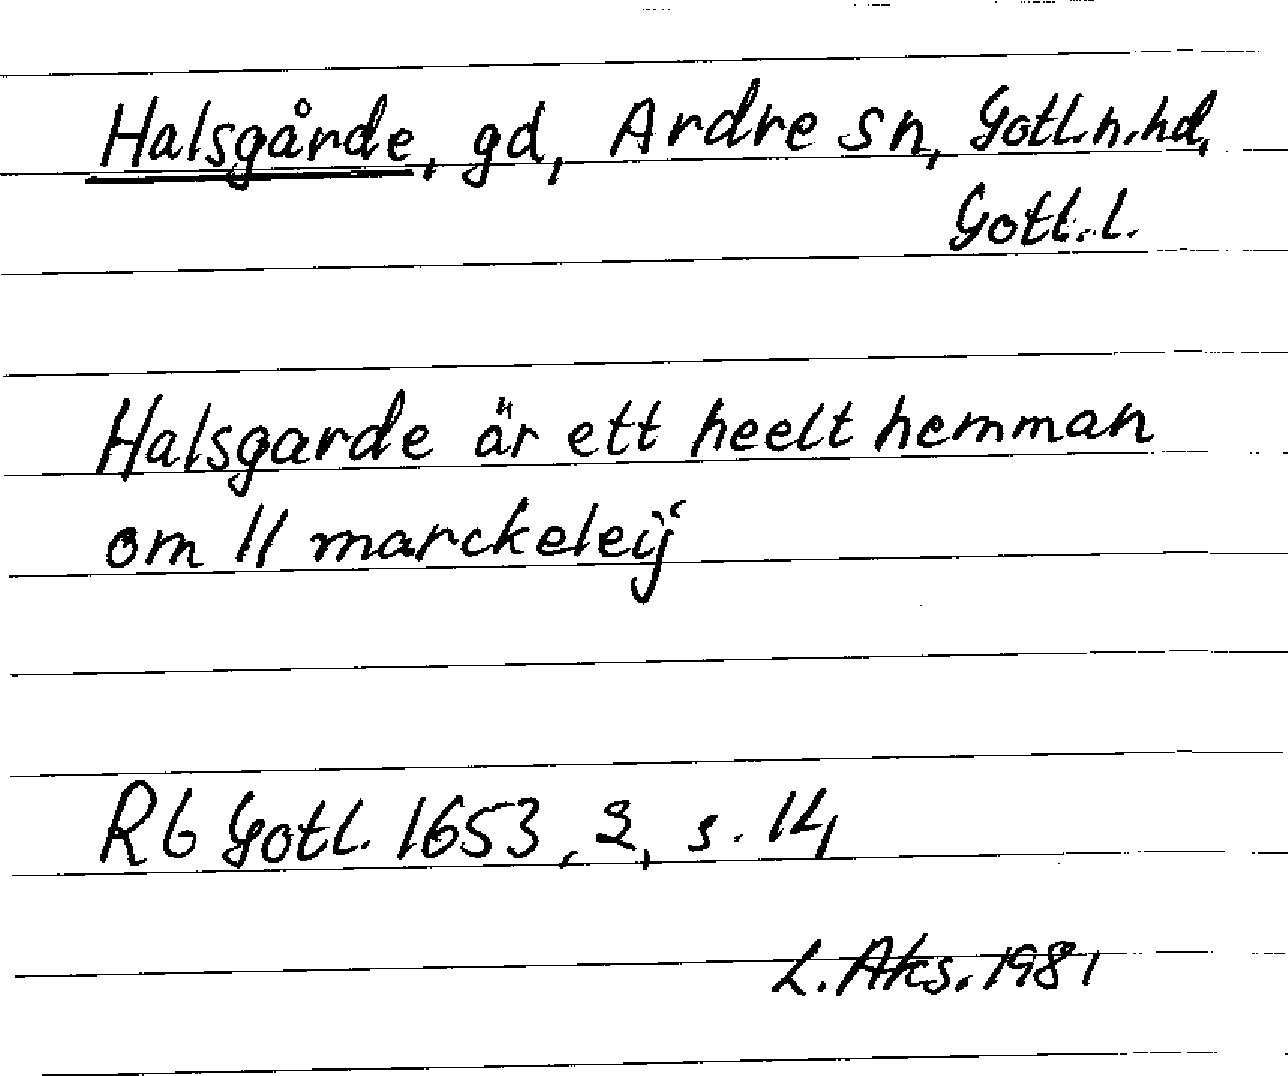 Halsgårde, gd, Ardre sn, Gotl.n.hd,
Gotl.l.
Halsgarde är ett heelt hemman
om 11 marckeleij
Rb Gotl. 1653, 2, s. 14
L. Aks. 1981